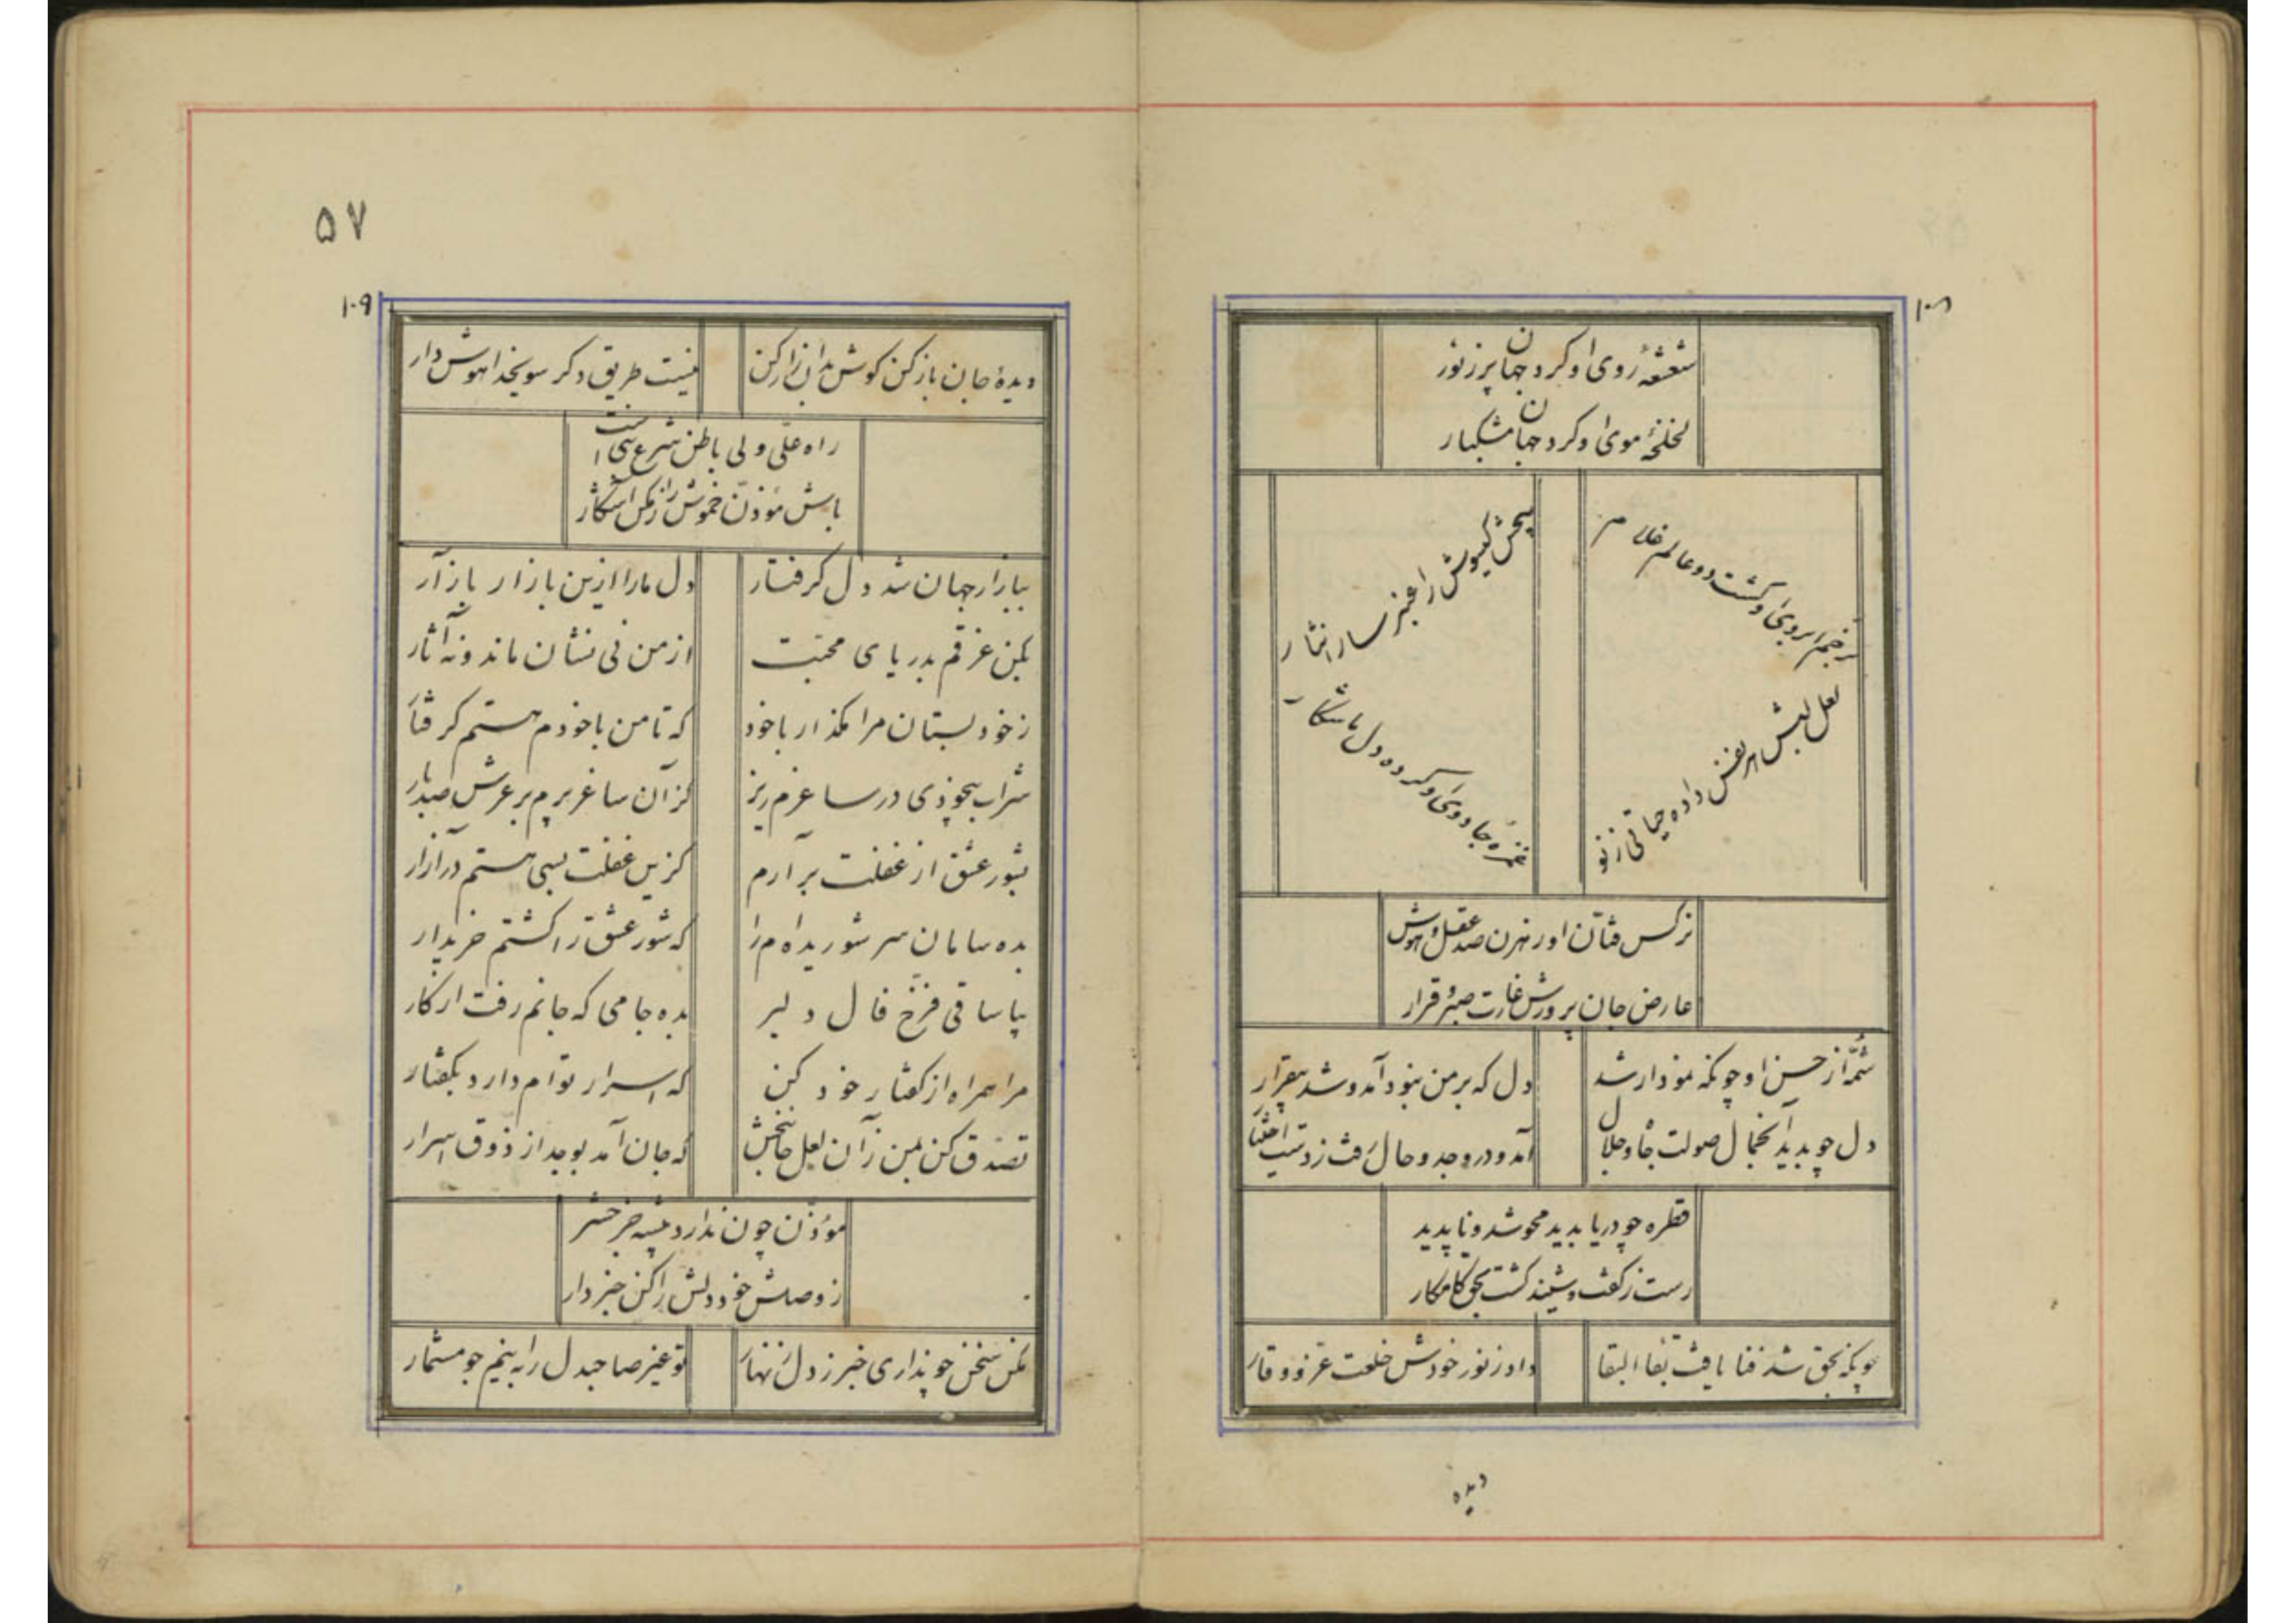 ۱۰۸
شعشعهٔ روی او کرد جهان پر ز نور
لخلخهٔ موی او کرد جهان مشکبار
بر خم ابروی او گشت دو عالم غلام
پیچش گیسوش را عنبر سارا نثار
لعل لبش هر نفس داده حیاتی ز نو
غمزه جادوی او کرده دل ما شکار
نرکس فتان او رهزن صد عقل و هوش
عارض جان پرورش غارت صبر و قرار
شمهٔ از حسن او چونکه نمودار شد
دل که بر من نبود آمد و شد بیقرار
دل چو بدید آنجمال صولت جاه و جلال
آمد و در وجد و حال رفت ز دست اختیار
قطره چو دریا بدید محو شد و ناپدید
رست ز گفت و شنید گشت بحق کامکار
چونکه بحق شد فنا یافت بقاء البقا
داد ز نور خودش خلعت عز و وقار
دیده
۵۷
۱۰۹
دیدهٔ جان باز کن کوش بدان راز کن
نیست طریق دکر سوی خدا هوش دار
راه علی ولی باطن شرع نبی است
باش مؤذن خموش راز مکن آشکار
ببازار جهان شد دل کرفتار
دل ما را ازین بازار باز آر
بکن غرقم بدریای محبت
از من نی نشان ماند و نه آثار
ز خود بستان مرا مگذار با خود
که تا من با خودم هستم کرفتار
شراب بیخودی در ساغرم ریز
کز آن ساغر برم بر عرش صد بار
بشور عشق از غفلت بر آرم
کزین غفلت بسی هستم در آزار
بده سامان سر شوریده‌ام را
که شور عشق را کشتم خریدار
بیا ساقی فرخ فال دلبر
بده جامی که جانم رفت از کار
مرا همراه از کفتار خود کن
که اسرار توام دارد بکفتار
تصدق کن بمن زآن لعل جانبخش
که جان آمد بوجد از ذوق اسرار
مؤذن چون ندارد پیشه جز
ز وصلش خود دلش را کن خبردار
مکن سخن چو نداری خبر ز دل زنهار
تو غیر صاحبدل را به نیم جو مشمار